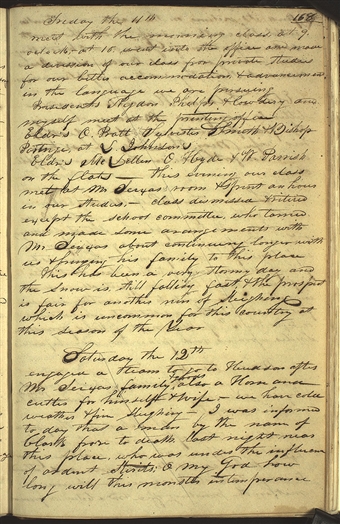 168
Friday the 11th
meet with the morning class at 9
oclock at 10 went into the office and made
a division of our class for private studies
for our better accommodation & advancement
in the language we are pursuing
Presidents Rigdon Phelps & Cowdery and
myself meet at the printing office
Eldrs O. Pratt Sylvester Smith & Bishop
Partrige at L. Johnson's
Eldrs McLellen O Hyde & W. Parrish
on the flats — this evening our class
met at Mr Seixas room & spent an hour
in our studies. — class dismissed & retired
except the school committee, who tarried
and made some arrangements with
Mr Seixas about continueing longer with
us & bringing his family to this place
This has been a very stormy day and
the snow is still falling fast & the prospect
is fair for another run of Sleighing
which is uncommon for this country at
this season of the year
Saturday the 12th
engaged a team to go to Hudson after
Mr Seixas family & goods also a Horse and
cutter for himself & wife — we have cold
weather & fine Sleighing — I was informed
to day that a man by the name of
Clark froze to death last night near
this place, who was under the influence
of ardent spirits; O my God how
long will this monster intemperance